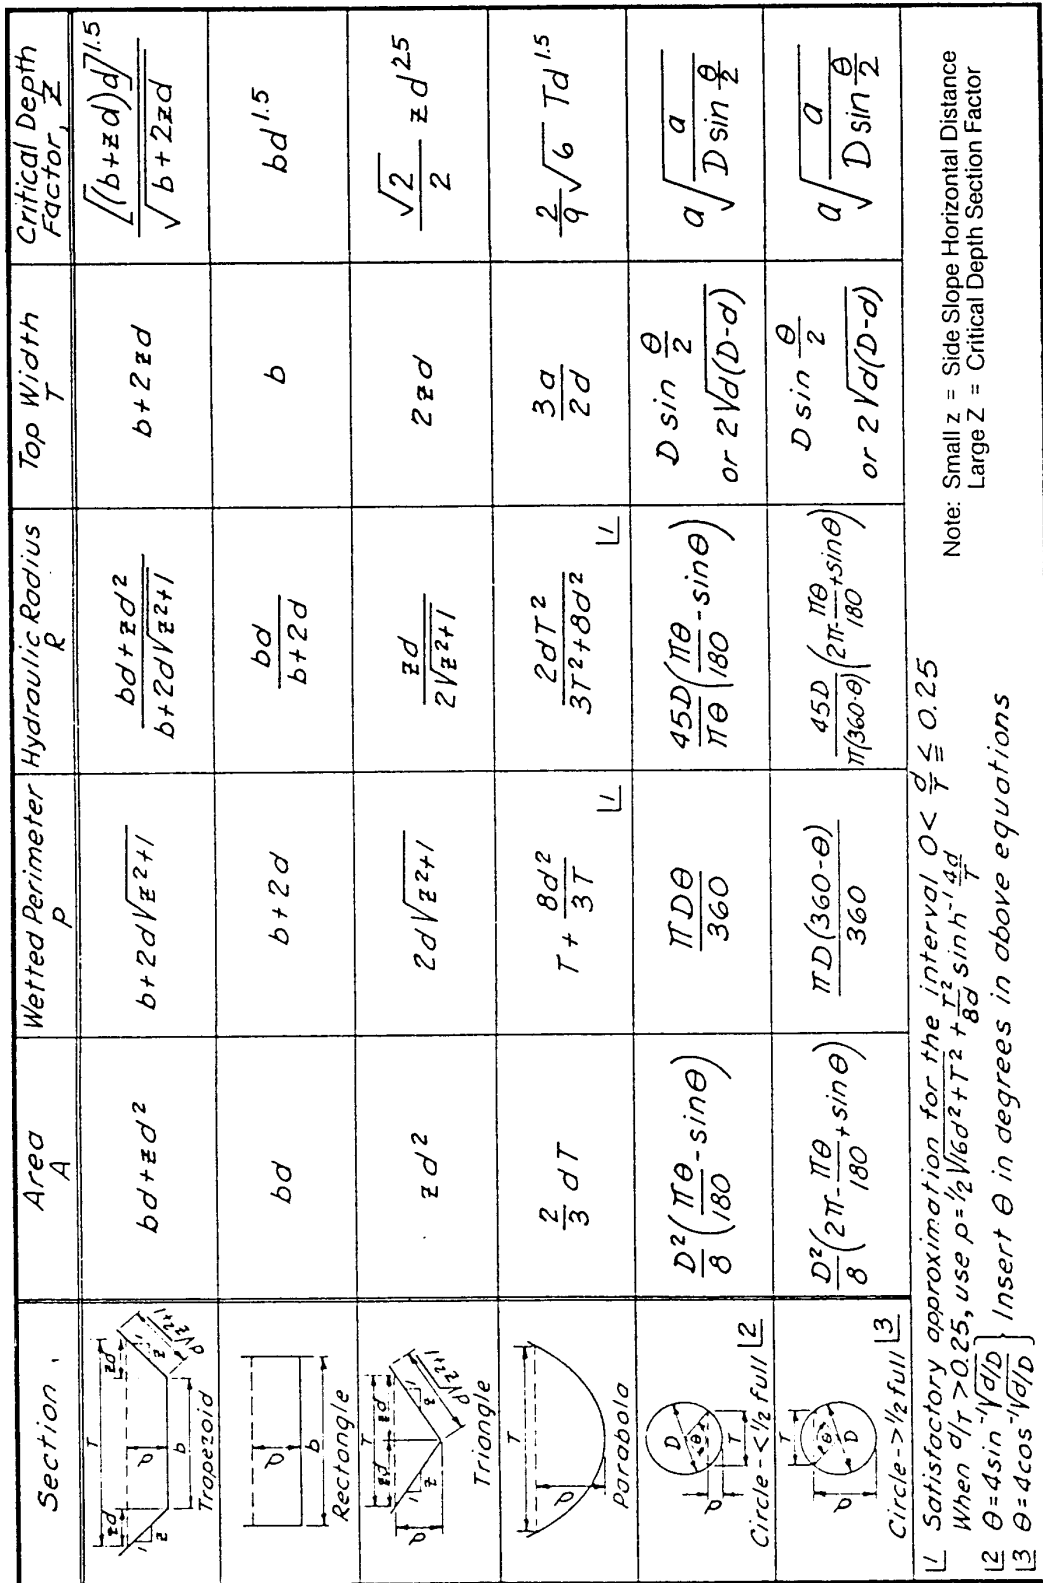 Section
Area
A
Wetted Perimeter
P
Hydraulic Radius
R
Top Width
T
Critical Depth
Factor, Z
T
zd
zd
1
z
d
b
1
z
d√z²+1
Trapezoid
bd+zd²
b+2d√z²+1
bd+zd² / b+2d√z²+1
b+2zd
[(b+zd)d]^1.5 / √b+2zd
d
b
Rectangle
bd
b+2d
bd / b+2d
b
bd^1.5
T
zd
zd
1
z
d
1
z
d√z²+1
Triangle
zd²
2d√z²+1
zd / 2√z²+1
2zd
√2/2 zd^2.5
T
d
Parabola
2/3 dT
T + 8d²/3T ⌊1
2dT² / 3T²+8d² ⌊1
3a/2d
2/9 √6 Td^1.5
D
θ
d
T
Circle-<½ full ⌊2
D²/8 (πθ/180 - sinθ)
πDθ/360
45D/πθ (πθ/180 - sinθ)
D sin θ/2
or 2√d(D-d)
a√(a / D sin θ/2)
T
θ
D
d
Circle->½ full ⌊3
D²/8 (2π - πθ/180 + sinθ)
πD(360-θ)/360
45D/π(360-θ) (2π - πθ/180 + sinθ)
D sin θ/2
or 2√d(D-d)
a√(a / D sin θ/2)
⌊1 Satisfactory approximation for the interval 0 < d/T ≦ 0.25
When d/T > 0.25, use p = ½√16d²+T² + T²/8d sinh⁻¹ 4d/T
⌊2 θ = 4 sin⁻¹√d/D
⌊3 θ = 4 cos⁻¹√d/D } Insert θ in degrees in above equations
Note: Small z = Side Slope Horizontal Distance
Large Z = Critical Depth Section Factor